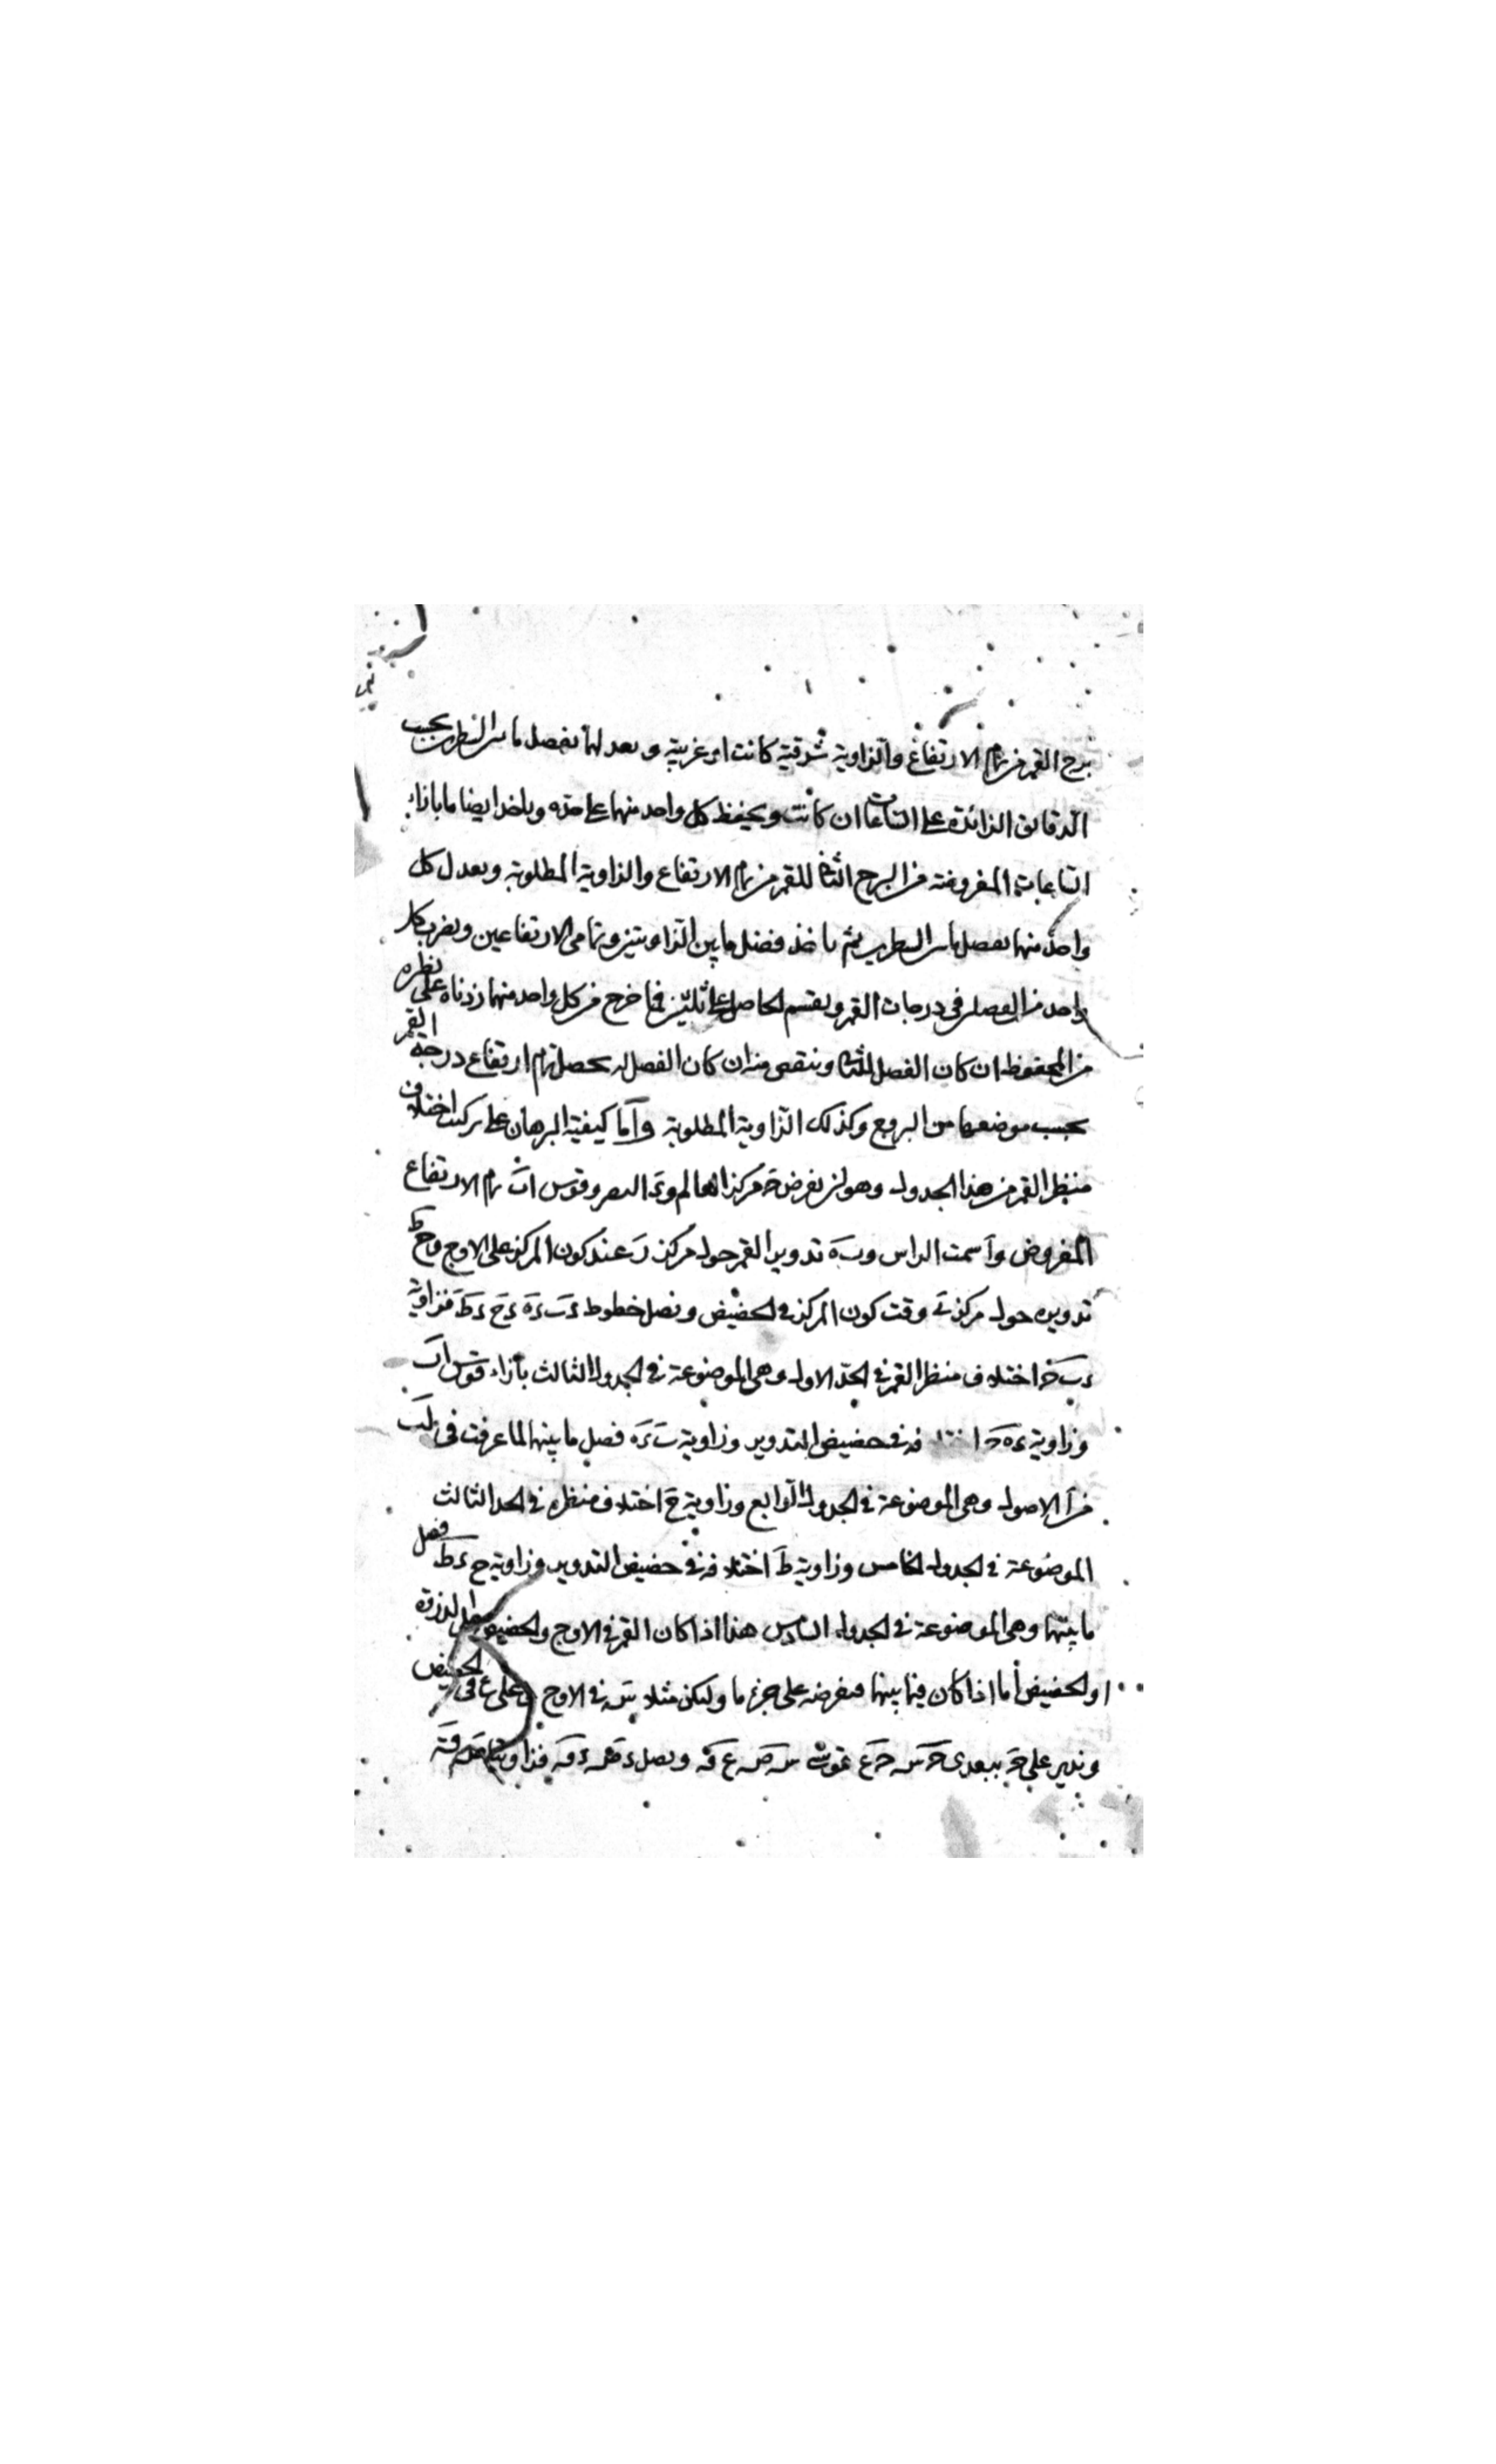 برج القمر من تمام الارتفاع والزاوية شرقية كانت او غربية ويعدلهما بفصل ما بين السطرين بحسب
الدقايق الزائدة على الساعات ان كانت ويحفظ كل واحد منهما على حدة وياخذ ايضا ما بازاء
الساعات المفروضة من البرج الثانى للقمر من تمام الارتفاع والزاوية المطلوبة ويعدل كل
واحد منهما بفصل ما بين السطرين ثم ياخذ فضل ما بين الزاويتين وتمامى الارتفاعين ويضرب كل
واحد من الفصلين فى درجات القمر ويقسم الحاصل على ثلثين فما خرج من كل واحد منهما زدناه على نظيره
من المحفوظ ان كان الفصل للثانى وننقص منه ان كان الفصل له يحصل تمام ارتفاع درجة القمر
بحسب موضعها من البروج وكذلك الزاوية المطلوبة واما كيفية البرهان على تركيب اختلاف
منظر القمر من هذا الجدول وهو ان نفرض مركز العالم و البصر وقوس اب تمام الارتفاع
المفروض وا سمت الراس وبه تدوير القمر حول مركز ر عند كون المركز على الاوج وح ط
تدويره حول مركز وقت كون المركز فى الحضيض ونصل خطوط ءب ءه ءح ءط فزاوية
اختلاف منظر القمر فى الحد الاول وهى الموضوعة فى الجدول الثالث بازاء قوس اب
وزاوية اختلافه فى حضيض التدوير وزاوية ب ءه فصل ما بينهما لما عرفت فى لب
من ا الاصول وهى الموضوعة فى الجدول الرابع وزاوية ح اختلاف منظره فى الحد الثالث
الموضوعة فى الجدول الخامس وزاوية ط اختلافه فى حضيض التدوير وزاوية ح ءط فصل
ما بينهما وهى الموضوعة فى الجدول السادس هذا اذا كان القمر فى الاوج والحضيض على الذروة
او الحضيض اما اذا كان فيما بينهما فنفرضه على جزء ما وليكن مثلا س فى الاوج على ع فى الحضيض
وندير على ببعدى قوسى س ص ع ف ونصل ءص ءف فزاويتا